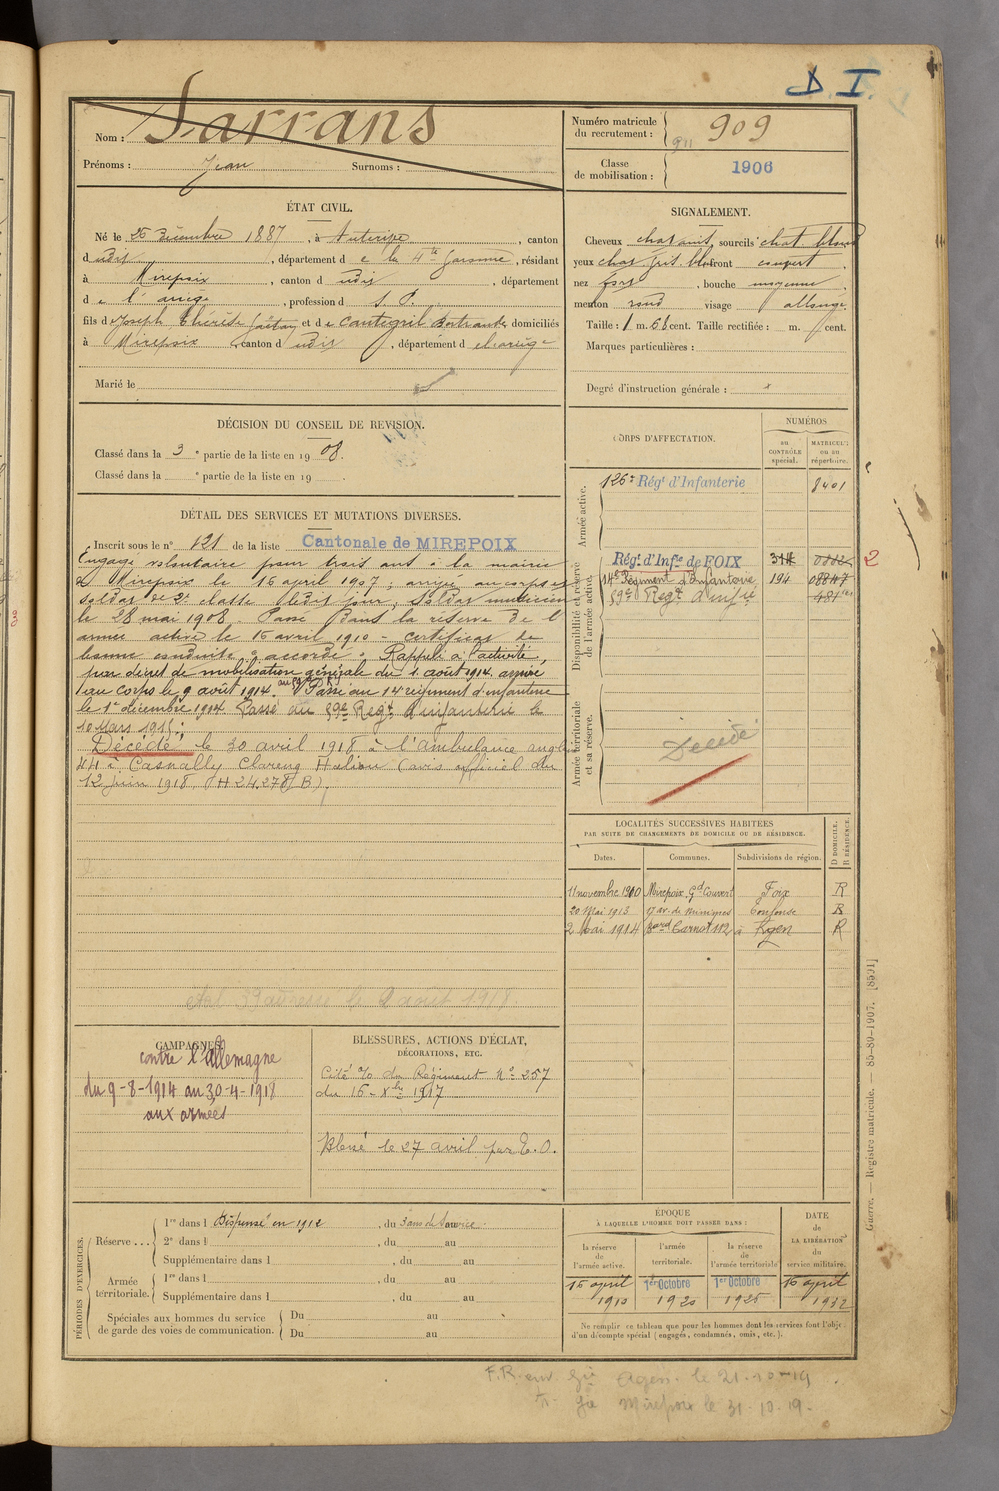 D. I.
Nom : Sarrans
Prénoms : Jean Surnoms :
Numéro matricule du recrutement : 909
Classe de mobilisation : 1906
ÉTAT CIVIL.
Né le 26 Décembre 1887, à Auterive, canton
dudit, département de la Hte Garonne, résidant
à Mirepoix, canton dudit, département
de l'ariège, profession d S. P.
fils d Joseph, Thérèse Gaëtan et de Cantegril Bertrande, domiciliés
à Mirepoix, canton dudit, département d el'ariège
Marié le
SIGNALEMENT.
Cheveux chat, sourcils chat blond
yeux front couvert,
nez fort, bouche moyenne,
menton rond visage allongé.
Taille : 1 m. 61 cent. Taille rectifiée : m. cent.
Marques particulières :
Degré d'instruction générale : x
DÉCISION DU CONSEIL DE REVISION.
Classé dans la 3e partie de la liste en 1908.
Classé dans la e partie de la liste en 19 .
DÉTAIL DES SERVICES ET MUTATIONS DIVERSES.
Inscrit sous le n° 121 de la liste Cantonale de MIREPOIX
Engagé volontaire pour trois ans à la mairie
de Mirepoix le 16 april 1907 ; arrivé au corps et
soldat de 2e classe ledit jour, soldat musicien
le 28 mai 1908. Passé Dans la réserve de l'
armée active le 16 avril 1910 - certificat de
bonne conduite "accordé". Rappelé à l'activité,
par décret de mobilisation générale du 1 août 1914. arrivé
au corps le 9 août 1914. Passé au 14 régiment d'infanterie
le 1er décembre 1914 Passé au 59e Regt d'infanterie le
10 Mars 1915 ;
Décédé, le 30 avril 1918 à l'ambulance anglaise
44 à Casnally Clareng Halion (avis officiel du
12 juin 1918, (H 24.278 (B),
le 2 aout 1918
CORPS D'AFFECTATION.
NUMÉROS
au CONTRÔLE spécial.
MATRICULE ou au répertoire.
Armée active.
126e Régt d'Infanterie 8401
Disponibilité et réserve de l'armée active.
Régt d'Infie de FOIX
14e Régiment d'Infanterie 194 08847
59e Regt d'infie
2
Armée territoriale et sa réserve.
Décédé
LOCALITÉS SUCCESSIVES HABITÉES
PAR SUITE DE CHANGEMENTS DE DOMICILE OU DE RÉSIDENCE.
D DOMICILE. R RÉSIDENCE.
Dates. Communes. Subdivisions de région.
11 novembre 1910 Mirepoix Gd Couvert Foix R
20 Mai 1913 17 av. de Minimes Toulouse R
2 Mai 1914 Bard Carnot 112 à Agen R
CAMPAGNES.
contre l'allemagne
du 9-8-1914 au 30-4-1918
aux armées
BLESSURES, ACTIONS D'ÉCLAT,
DÉCORATIONS, ETC.
Cité % du Régiment No 257
du 16 - Xbre 1917
Blessé le 27 avril par E. O.
PÉRIODES D'EXERCICES.
Réserve ...
1re dans l Dispensé en 1912, du 3 ans de service.
2e dans l , du au
Supplémentaire dans l , du au
Armée territoriale.
1re dans l , du au
Supplémentaire dans l , du au
Spéciales aux hommes du service de garde des voies de communication.
Du au
Du au
ÉPOQUE
À LAQUELLE L'HOMME DOIT PASSER DANS :
la réserve de l'armée active.
l'armée territoriale.
la réserve de l'armée territoriale
DATE de LA LIBÉRATION du service militaire.
16 april 1910
1er Octobre 1920
1er Octobre 1926
16 april 1932
Ne remplir ce tableau que pour les hommes dont les services font l'objet
d'un décompte spécial (engagés, condamnés, omis, etc.).
Guerre. — Registre matricule. — 85-89-1907. [8501]
F. R. env. Gie Agen. le 21-10-19.
Gie Mirepoix le 31-10-19.